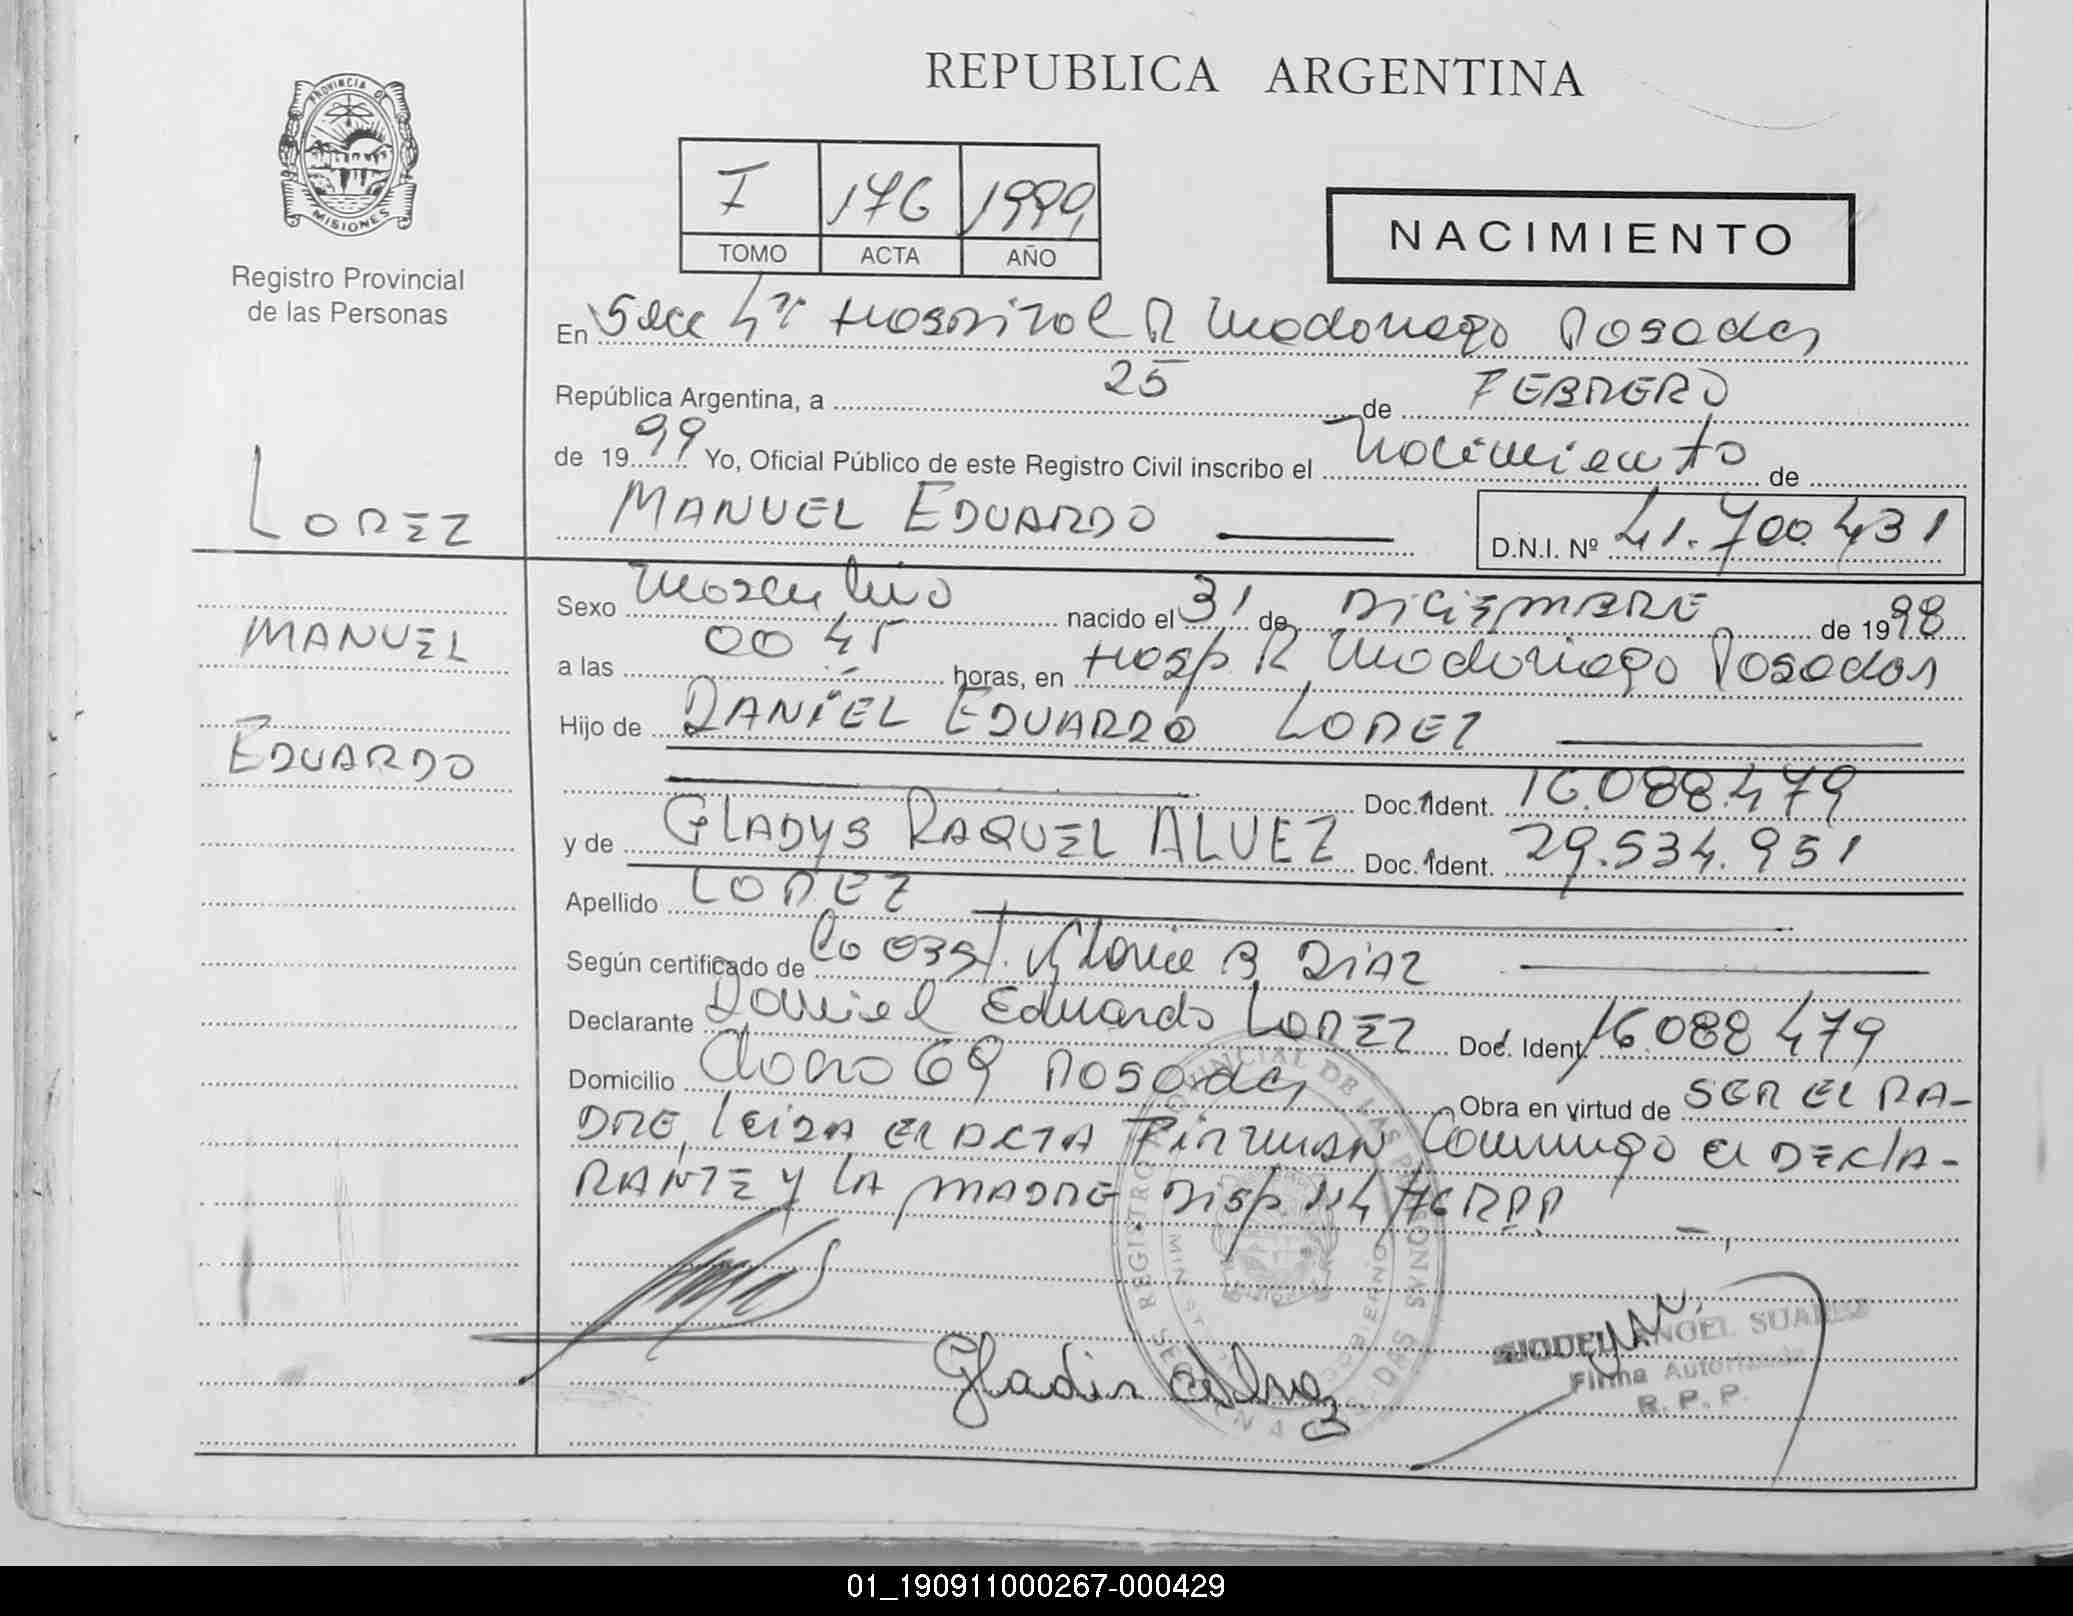 REPUBLICA ARGENTINA
PROVINCIA DE
MISIONES
Registro Provincial
de las Personas
I 176 1999
TOMO ACTA AÑO
NACIMIENTO
En Secc 4ª Hospital R Madariaga Posadas
República Argentina, a 25 de FEBRERO
de 1999 Yo, Oficial Público de este Registro Civil inscribo el Nacimiento de
LOPEZ
MANUEL EDUARDO
D.N.I. Nº 41.700.431
MANUEL
EDUARDO
Sexo Masculino nacido el 31 de DICIEMBRE de 1998
a las 00 45 horas, en Hosp. R Madariaga Posadas
Hijo de DANIEL EDUARDO LOPEZ
Doc. Ident. 16.088.479
y de GLADYS RAQUEL ALVEZ Doc. Ident. 29.534.951
Apellido LOPEZ
Según certificado de la Obst. Gloria B. DIAZ
Declarante Daniel Eduardo LOPEZ Doc. Ident. 16.088 479
Domicilio 69 Posadas Obra en virtud de SER EL PA-
DRE, leida el ACTA FIRMAN Conmigo el DECLA-
RANTE y LA MADRE Disp 114/76 RPP
REGISTRO PROVINCIAL DE LAS PERSONAS
Gladis Alvez
ANGEL SUAREZ
Firma Autorizada
R. P. P.
01_190911000267-000429